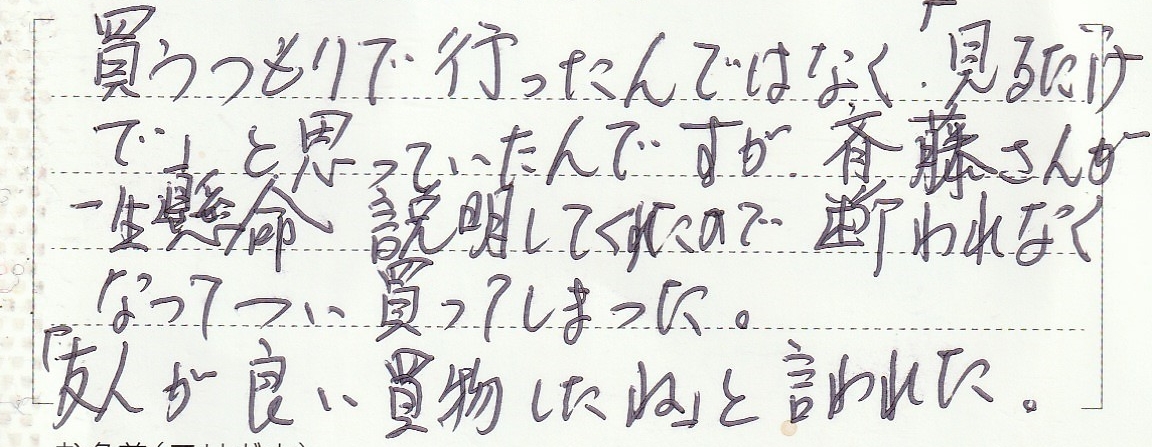 買うつもりで行ったんではなく、「見るだけ
で」と思っていたんですが、斉藤さんが
一生懸命説明してくれたので断われなく
なってつい買ってしまった。
「友人が良い買物したね」と言われた。